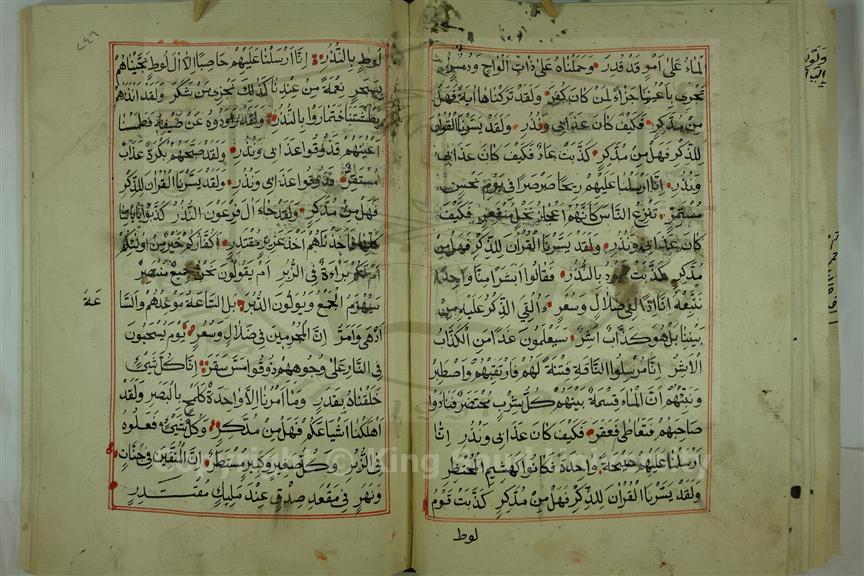 الماء على امر قد قدر وحملناه على ذات الواح ودسر
تجري باعيننا جزاء لمن كان كفر ولقد تركناها اية فهل
من مدكر فكيف كان عذابي ونذر ولقد يسرنا القران
للذكر فهل من مدكر كذبت عاد فكيف كان عذابي
ونذر انا ارسلنا عليهم ريحا صرصرا في يوم نحس
مستمر تنزع الناس كانهم اعجاز نخل منقعر فكيف
كان عذابي ونذر ولقد يسرنا القران للذكر فهل من
مدكر كذبت ثمود بالنذر فقالوا ابشرا منا واحدا
نتبعه انا اذا لفي ضلال وسعر ءالقي الذكر عليه من
بيننا بل هو كذاب اشر سيعلمون غدا من الكذاب
الاشر انا مرسلوا الناقة فتنة لهم فارتقبهم واصطبر
ونبئهم ان الماء قسمة بينهم كل شرب محتضر فنادوا
صاحبهم فتعاطى فعقر فكيف كان عذابي ونذر انا
ارسلنا عليهم صيحة واحدة فكانوا كهشيم المحتظر
ولقد يسرنا القران للذكر فهل من مدكر كذبت قوم
لوط
٢٤٦
لوط بالنذر انا ارسلنا عليهم حاصبا الا ال لوط نجيناهم
بسحر نعمة من عندنا كذلك نجزي من شكر ولقد انذرهم
بطشتنا فتماروا بالنذر ولقد راودوه عن ضيفه فطمسنا
اعينهم فذوقوا عذابي ونذر ولقد صبحهم بكرة عذاب
مستقر فذوقوا عذابي ونذر ولقد يسرنا القران للذكر
فهل من مدكر ولقد جاء ال فرعون النذر كذبوا باياتنا
كلها فاخذناهم اخذ عزيز مقتدر اكفاركم خير من اولئكم
ام لكم براءة في الزبر ام يقولون نحن جميع منتصر
سيهزم الجمع ويولون الدبر بل الساعة موعدهم والسا
عة
ادهى وامر ان المجرمين في ضلال وسعر يوم يسحبون
في النار على وجوههم ذوقوا مس سقر انا كل شيء
خلقناه بقدر وما امرنا الا واحدة كلمح بالبصر ولقد
اهلكنا اشياعكم فهل من مدكر وكل شيء فعلوه
في الزبر وكل صغير وكبير مستطر ان المتقين في جنات
ونهر في مقعد صدق عند مليك مقتدر